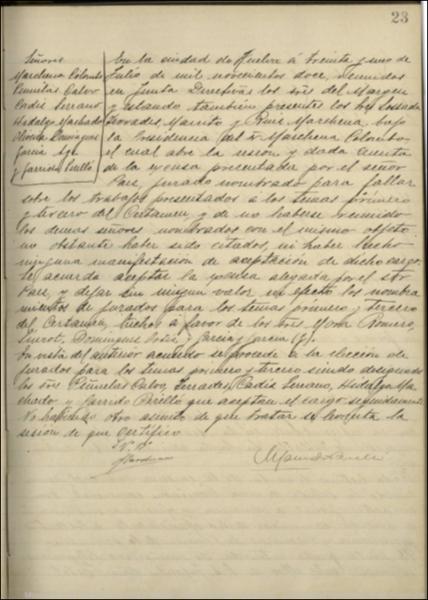 23
Señores
Marchena Colombo
Peñuelas Calvo
Cadiz Serrano
Hidalgo Machado
Dominguez
Garcia
y Garrido Perelló
En la ciudad de Huelva á treinta y uno de
Julio de mil novecientos doce, reunidos
en Junta Directiva los sres del margen
y estando tambien presentes los sres
Morales y Ruiz Marchena, bajo
la Presidencia del Sr Marchena Colombo,
el cual abre la sesion y dada cuenta
de la excusa presentada por el señor
jurado nombrado para fallar
sobre los trabajos presentados a los temas primero
y tercero del Certamen y de no haberse reunido
los demas señores nombrados con el mismo objeto
no obstante haber sido citados, ni haber hecho
ninguna manifestacion de aceptacion de dicho cargo,
se acuerda aceptar la excusa alegada por el Sr
y dejar sin ningun valor ni efecto los nombra
mientos de jurados para los temas primero y tercero
del Certamen, hechos á favor de los sres Mora Romero,
Dominguez y Garcia y Garcia (J).
En vista del anterior acuerdo se procede á la eleccion de
jurados para los temas primero y tercero siendo designados
los sres Peñuelas Calvo, Cadiz Serrano, Hidalgo Ma
chado y Garrido Perelló que aceptan el cargo seguidamente.
No habiendo otro asunto de que tratar se levanta la
sesion de que certifico
Vº Bº